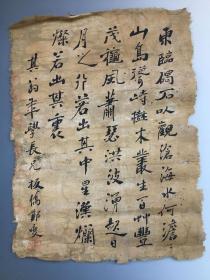 東臨碣石以觀滄海水何澹
山島聳峙樹木叢生百艸豐
茂穐風蕭瑟洪波涌起日
月之行若出其中星漢爛
燦若出其裏
翁年學長兄 板橋鄭燮